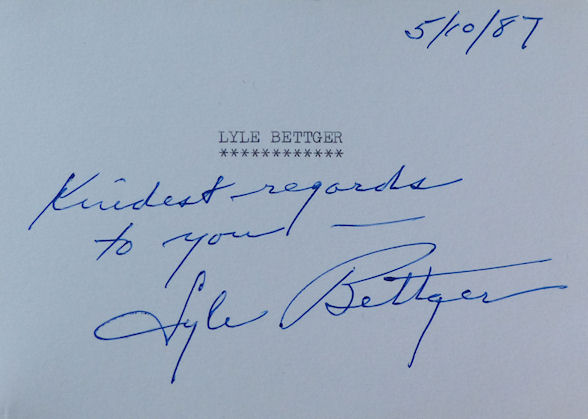 5/10/87
LYLE BETTGER
************
Kindest regards
to you —
Lyle Bettger